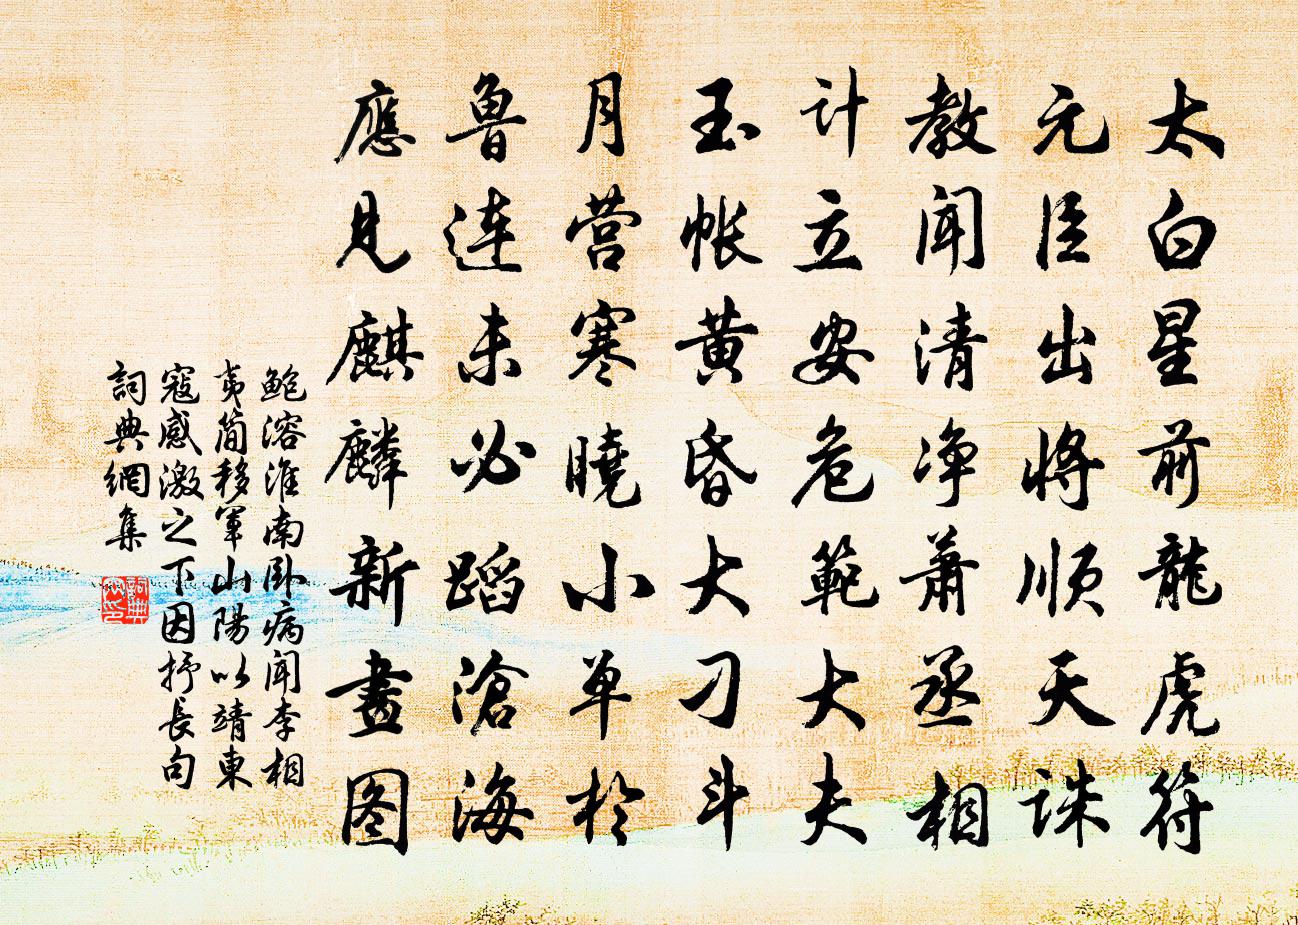 太白星前龍虎符
元臣出將順天誅
教聞清净蕭丞相
計立安危範大夫
玉帐黄昏大刁斗
月营寒曉小单於
魯连未必蹈滄海
應见麒麟新畫图
鲍溶淮南卧病闻李相
夷简移军山陽以靖東
寇感激之下因抒長句
詞典網集